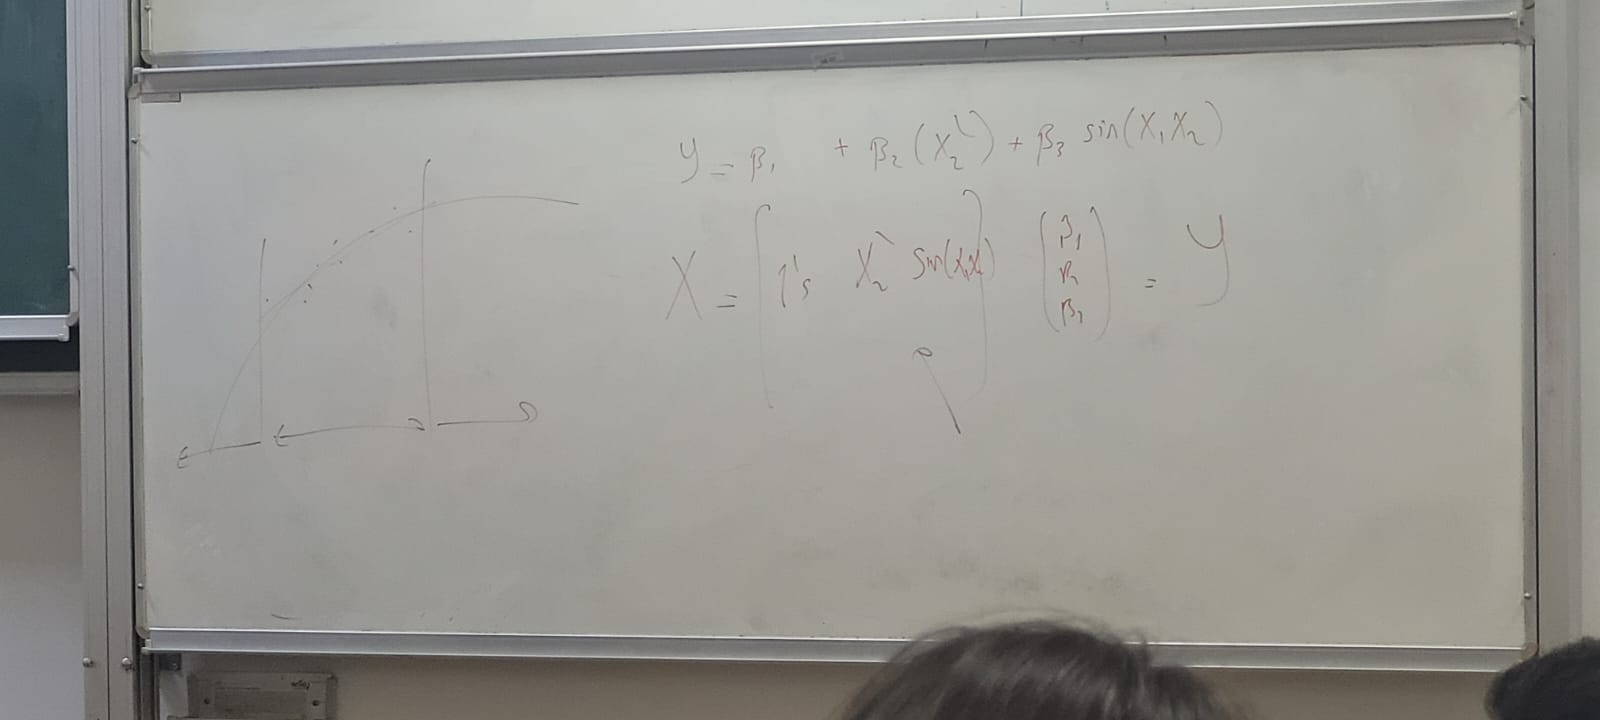 y = β₁ + β₂ (X₂²) + β₃ sin(X₁X₂)
X = [1's X₂² sin(X₁X₂)] (β₁ β₂ β₃) = y